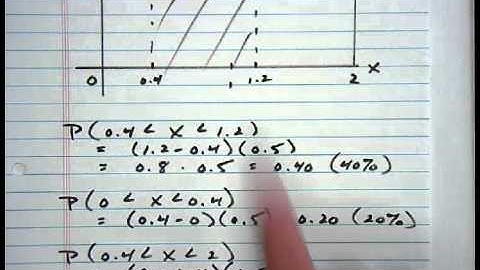 0 0.4 1.2 2 x
P(0.4 < X < 1.2)
= (1.2-0.4)(0.5)
= 0.8 · 0.5 = 0.40 (40%)
P(0 < X < 0.4)
= (0.4-0)(0.5) 0.20 (20%)
P(0.4 < X < 2)